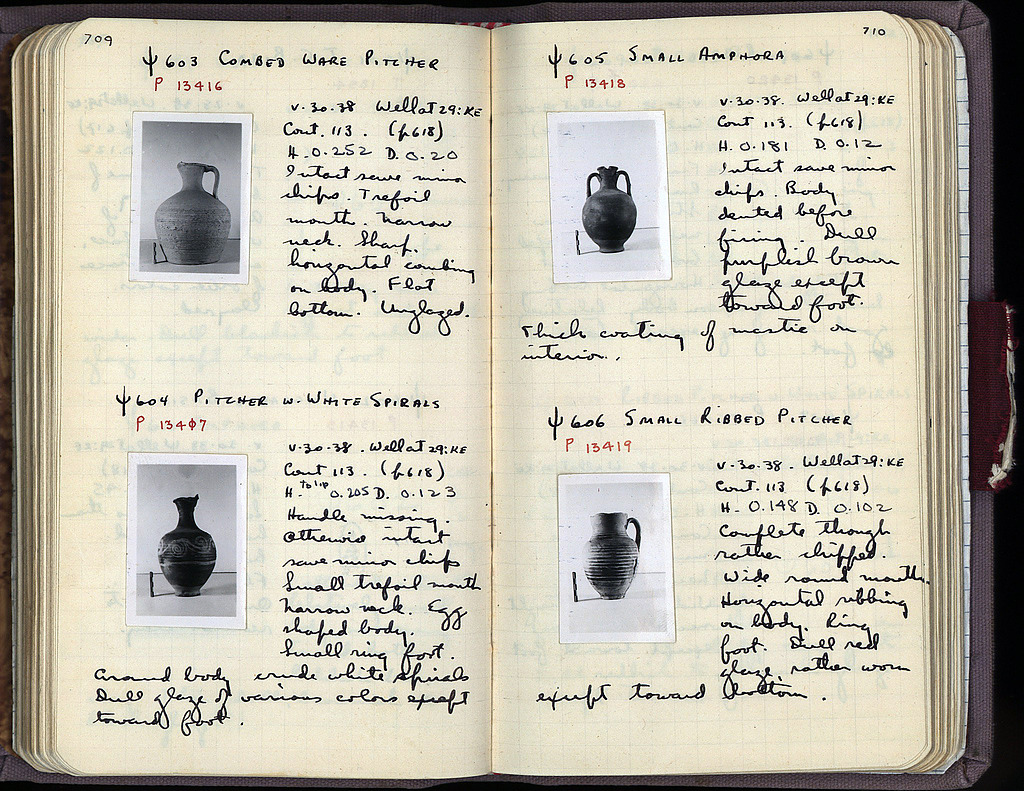 709
Ψ603 COMBED WARE PITCHER
P 13416
V-30-38 Well at 29:ΚΕ
Cont. 113. (p618)
H. 0.252 D. 0.20
Intact save minor
chips. Trefoil
mouth. Narrow
neck. Sharp,
horizontal combing
on body. Flat
bottom. Unglazed.
Ψ604 PITCHER W. WHITE SPIRALS
P 13407
V-30-38. Well at 29:ΚΕ
Cont. 113. (p618)
H. to lip 0.205 D. 0.123
Handle missing.
Otherwise intact
save minor chips
Small trefoil mouth
Narrow neck. Egg
shaped body.
Small ring foot.
Around body crude white spirals
Dull glaze of various colors except
toward foot.
710
Ψ605 SMALL AMPHORA
P 13418
V-30-38. Well at 29:ΚΕ
Cont 113. (p618)
H. 0.181 D. 0.12
Intact save minor
chips. Body
dented before
firing. Dull
purplish brown
glaze except
toward foot.
Thick coating of mastic on
interior.
Ψ606 SMALL RIBBED PITCHER
P 13419
V-30-38. Well at 29:ΚΕ
Cont. 113 (p618)
H. 0.148 D. 0.102
Complete though
rather chipped.
Wide round mouth.
Horizontal ribbing
on body. Ring
foot. Dull red
glaze, rather worn
except toward bottom.